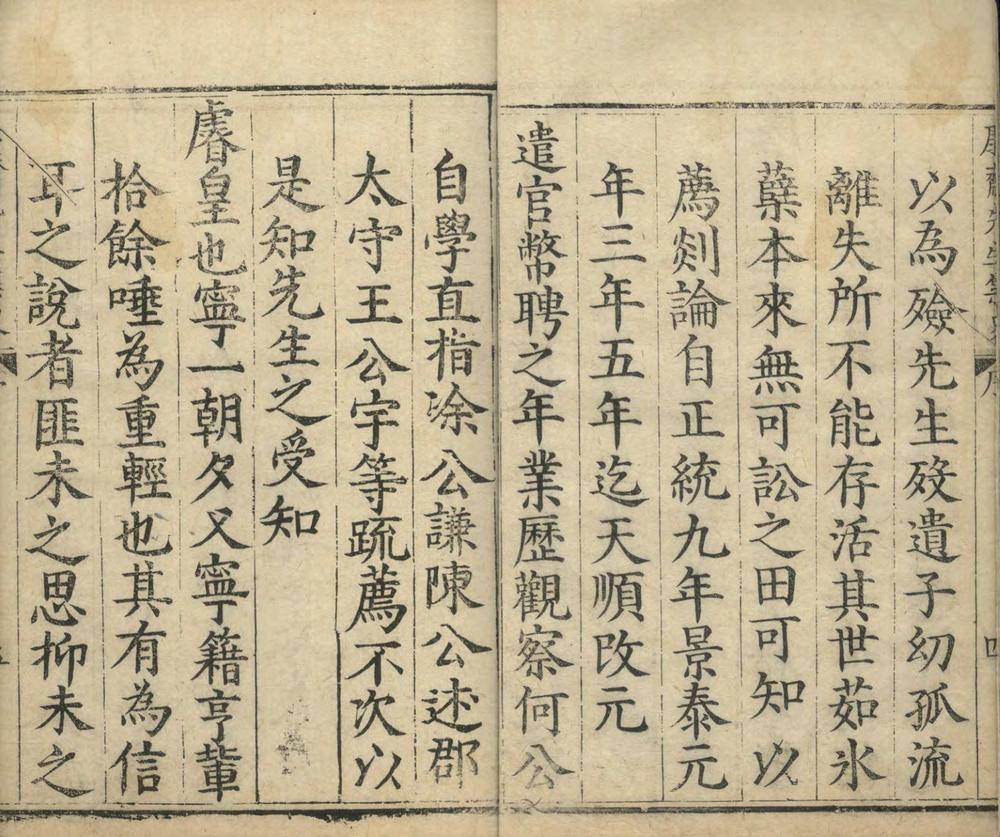 以為殮先生歿遺子幼孤流
離失所不能存活其世茹氷
蘖本來無可訟之田可知以
薦剡論自正統九年景泰元
年三年五年迄天順改元
遣官幣聘之年業歷觀察何公
自學直指涂公謙陳公述郡
太守王公宇等疏薦不次以
是知先生之受知
睿皇也寧一朝夕又寧籍亨輩
拾餘唾為重輕也其有為信
耳之說者匪未之思抑未之